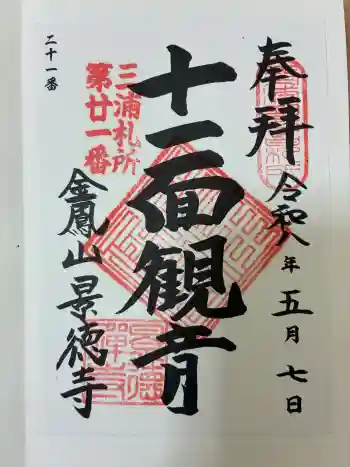 奉拝
令和八年五月七日
十一面観音
三浦札所
第廿一番
金鳳山景徳寺
二十一番
景德
禅寺